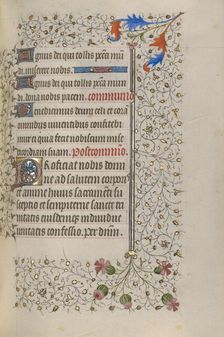 Agnus dei qui tollis pc̄cā mū
di. miserere nobis.
Agnus dei qui tollis pc̄cā mun
di. dona nobis pacem. communio
Benedicimus deum celi et cora
omnibus viuentibus confitebi
mur ei quia fecit nobiscum mise
ricordiam suam. Postcommunio.
Proficiat nobis domi
ne ad salutem corpor
et anime huius sacramēti su
sceptio et sempiterne sancte tri
nitatis eiusdemqꝫ indiuidue
unitatis confessio. Per dnm̄.